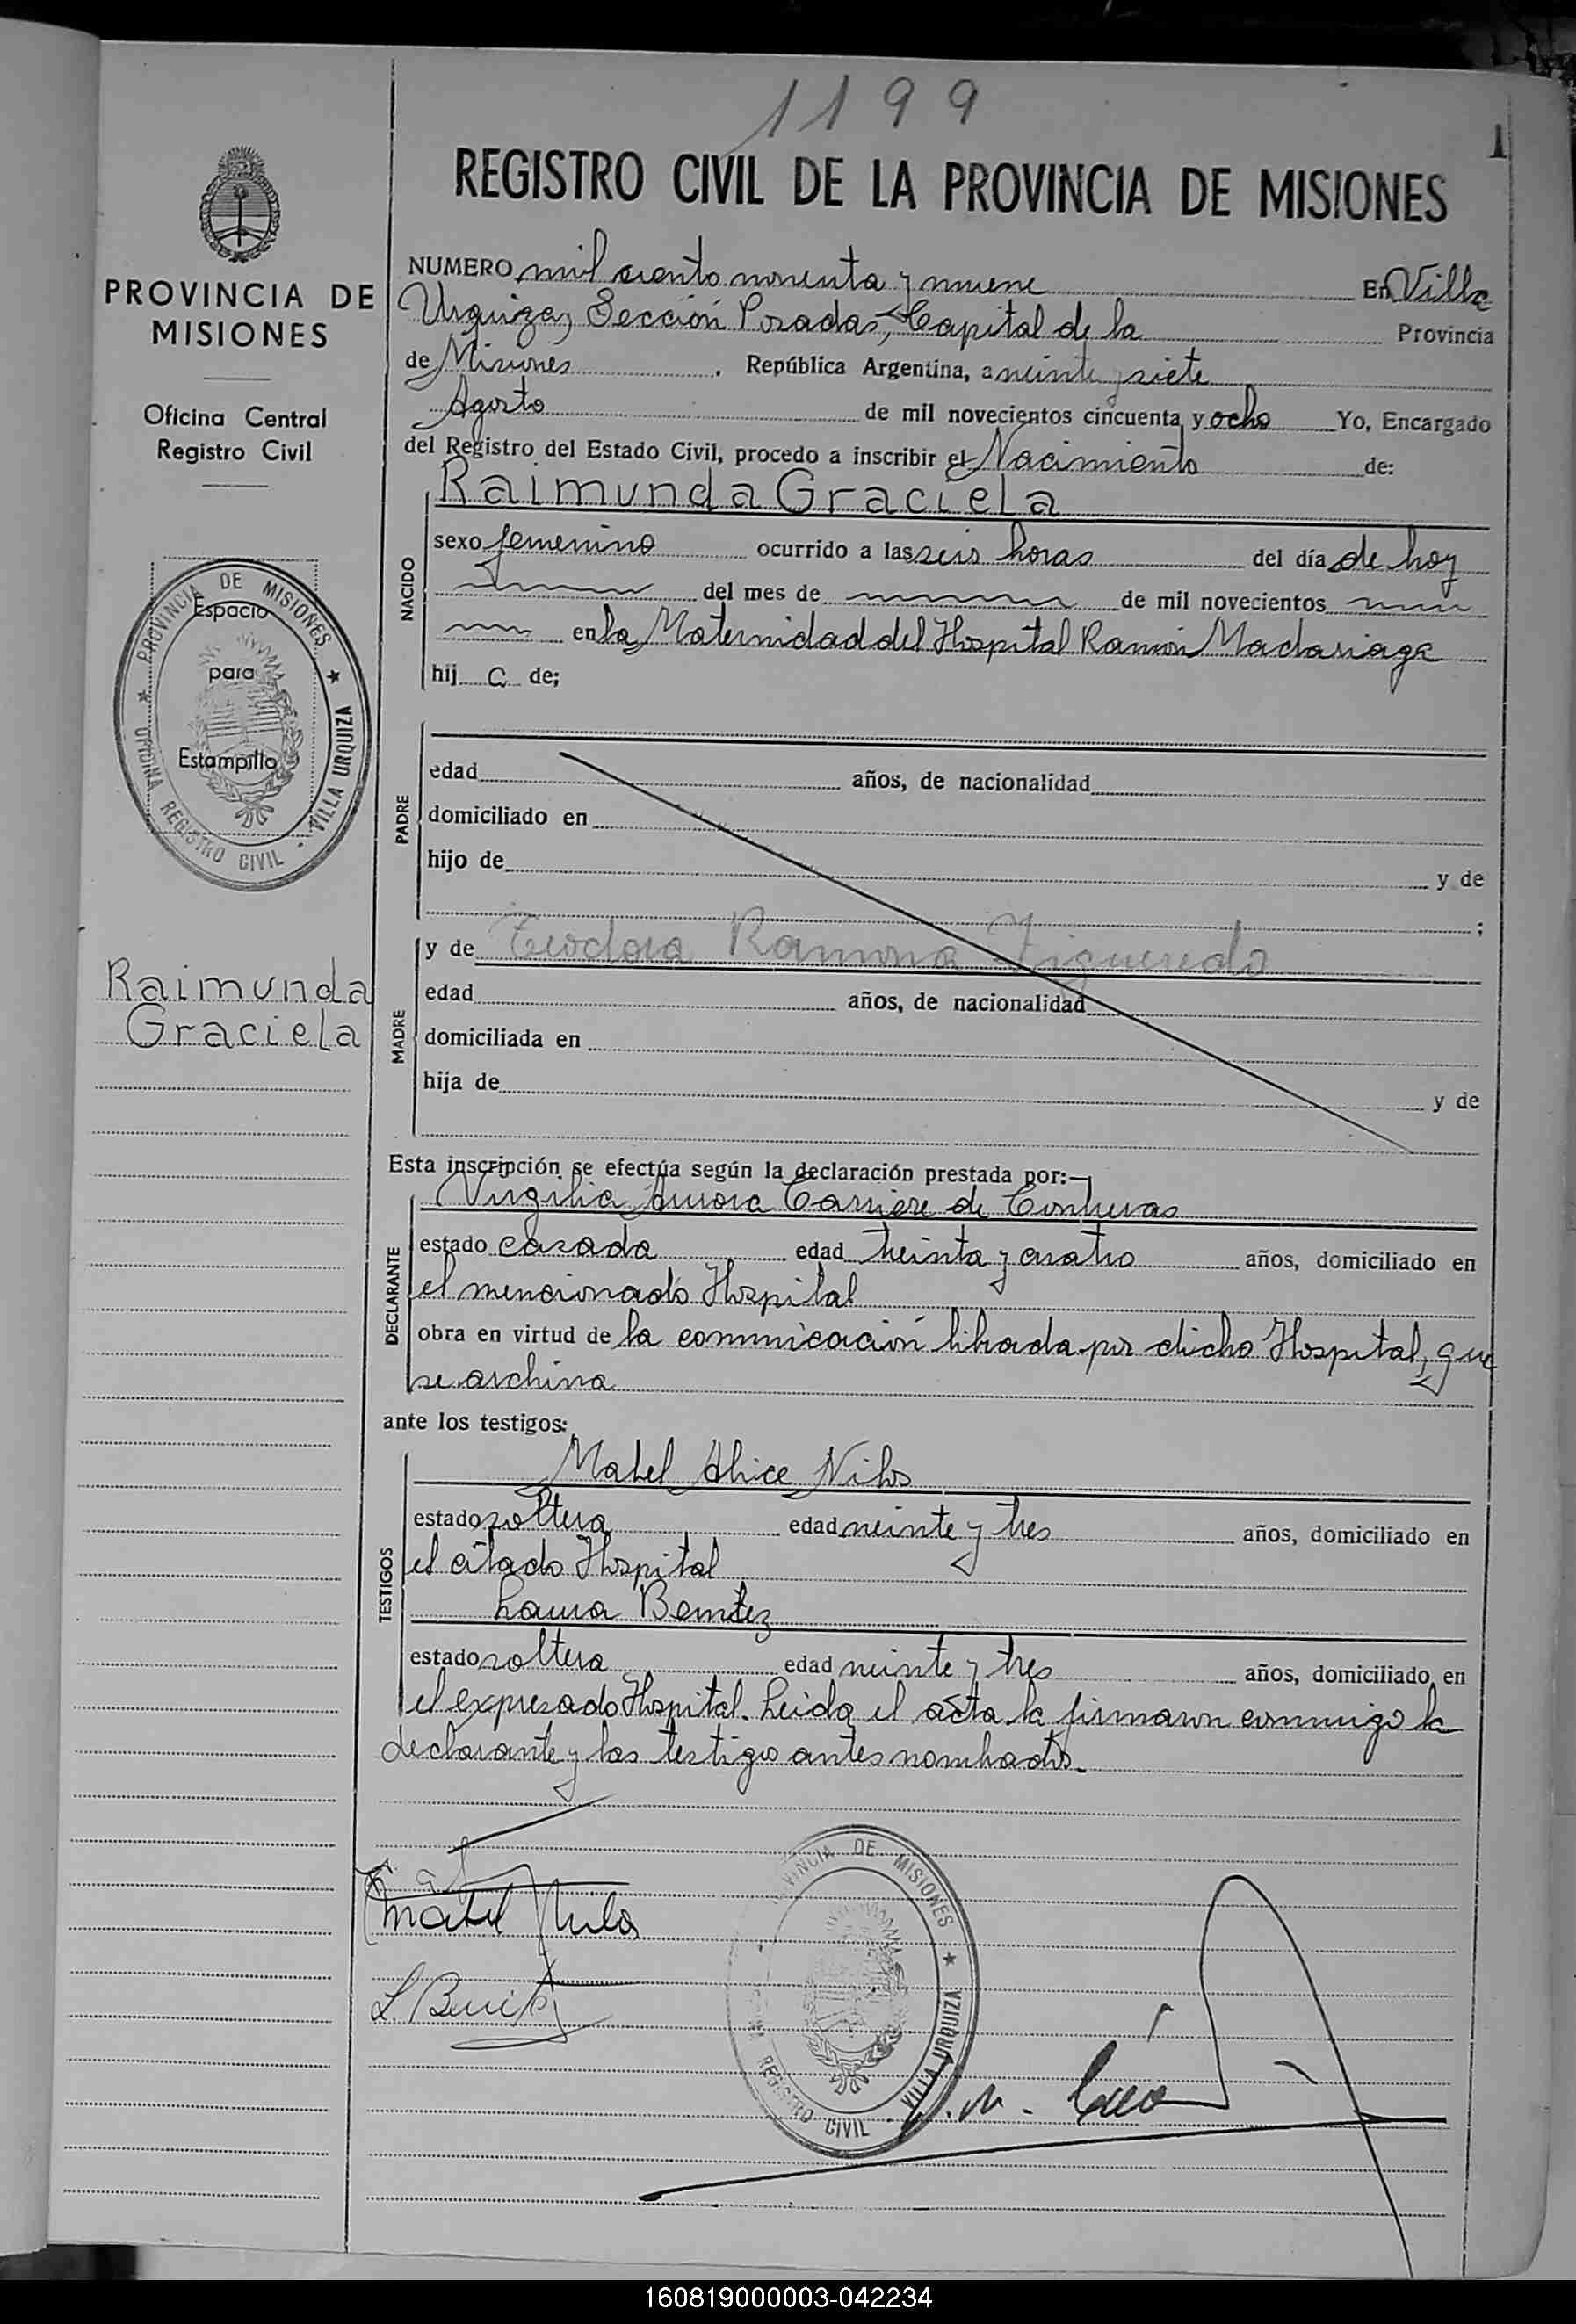 1199
1
REGISTRO CIVIL DE LA PROVINCIA DE MISIONES
PROVINCIA DE
MISIONES
Oficina Central
Registro Civil
PROVINCIA DE MISIONES ★ VILLA URQUIZA
OFICINA REGISTRO CIVIL
Espacio
para
Estampilla
Raimunda
Graciela
NUMERO mil ciento noventa y nueve En Villa
Urquiza, Sección Posadas, Capital de la Provincia
de Misiones, República Argentina, a veinte y siete
Agosto de mil novecientos cincuenta y ocho Yo, Encargado
del Registro del Estado Civil, procedo a inscribir el Nacimiento de:
NACIDO
Raimunda Graciela
sexo femenino ocurrido a las seis horas del día de hoy
del mes de de mil novecientos
en la Maternidad del Hospital Ramón Madariaga
hij a de;
PADRE
edad años, de nacionalidad
domiciliado en
hijo de y de
;
MADRE
y de Teodora Ramona Figueredo
edad años, de nacionalidad
domiciliada en
hija de y de
Esta inscripción se efectúa según la declaración prestada por:
DECLARANTE
Virgilia Aurora Carriere de Contreras
estado casada edad treinta y cuatro años, domiciliado en
el mencionado Hospital
obra en virtud de la comunicación librada por dicho Hospital, que
se archiva
ante los testigos:
TESTIGOS
Mabel Alice Nilos
estado soltera edad veinte y tres años, domiciliado en
el citado Hospital
Laura Benitez
estado soltera edad veinte y tres años, domiciliado en
el expresado Hospital. Leida el acta la firmaron conmigo la
declarante y las testigos antes nombrados.
Mabel Nilos
L. Benitez
PROVINCIA DE MISIONES ★ VILLA URQUIZA
REGISTRO CIVIL
160819000003-042234